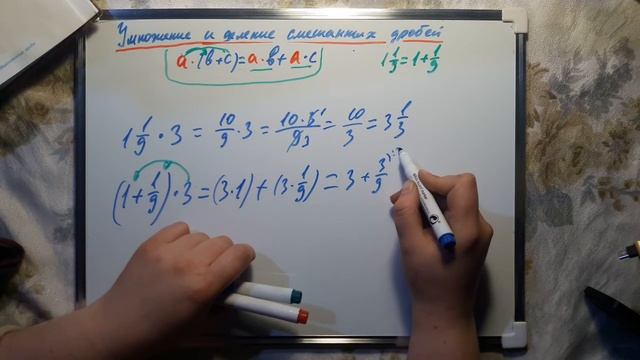 Умножение и деление смешанных дробей
a·(b+c)=a·b+a·c
1 1/9 = 1 + 1/9
1 1/9 · 3 = 10/9 · 3 = 10·3¹/9₃ = 10/3 = 3 1/3
(1+1/9)·3 = (3·1)+(3·1/9) = 3 + 3/9